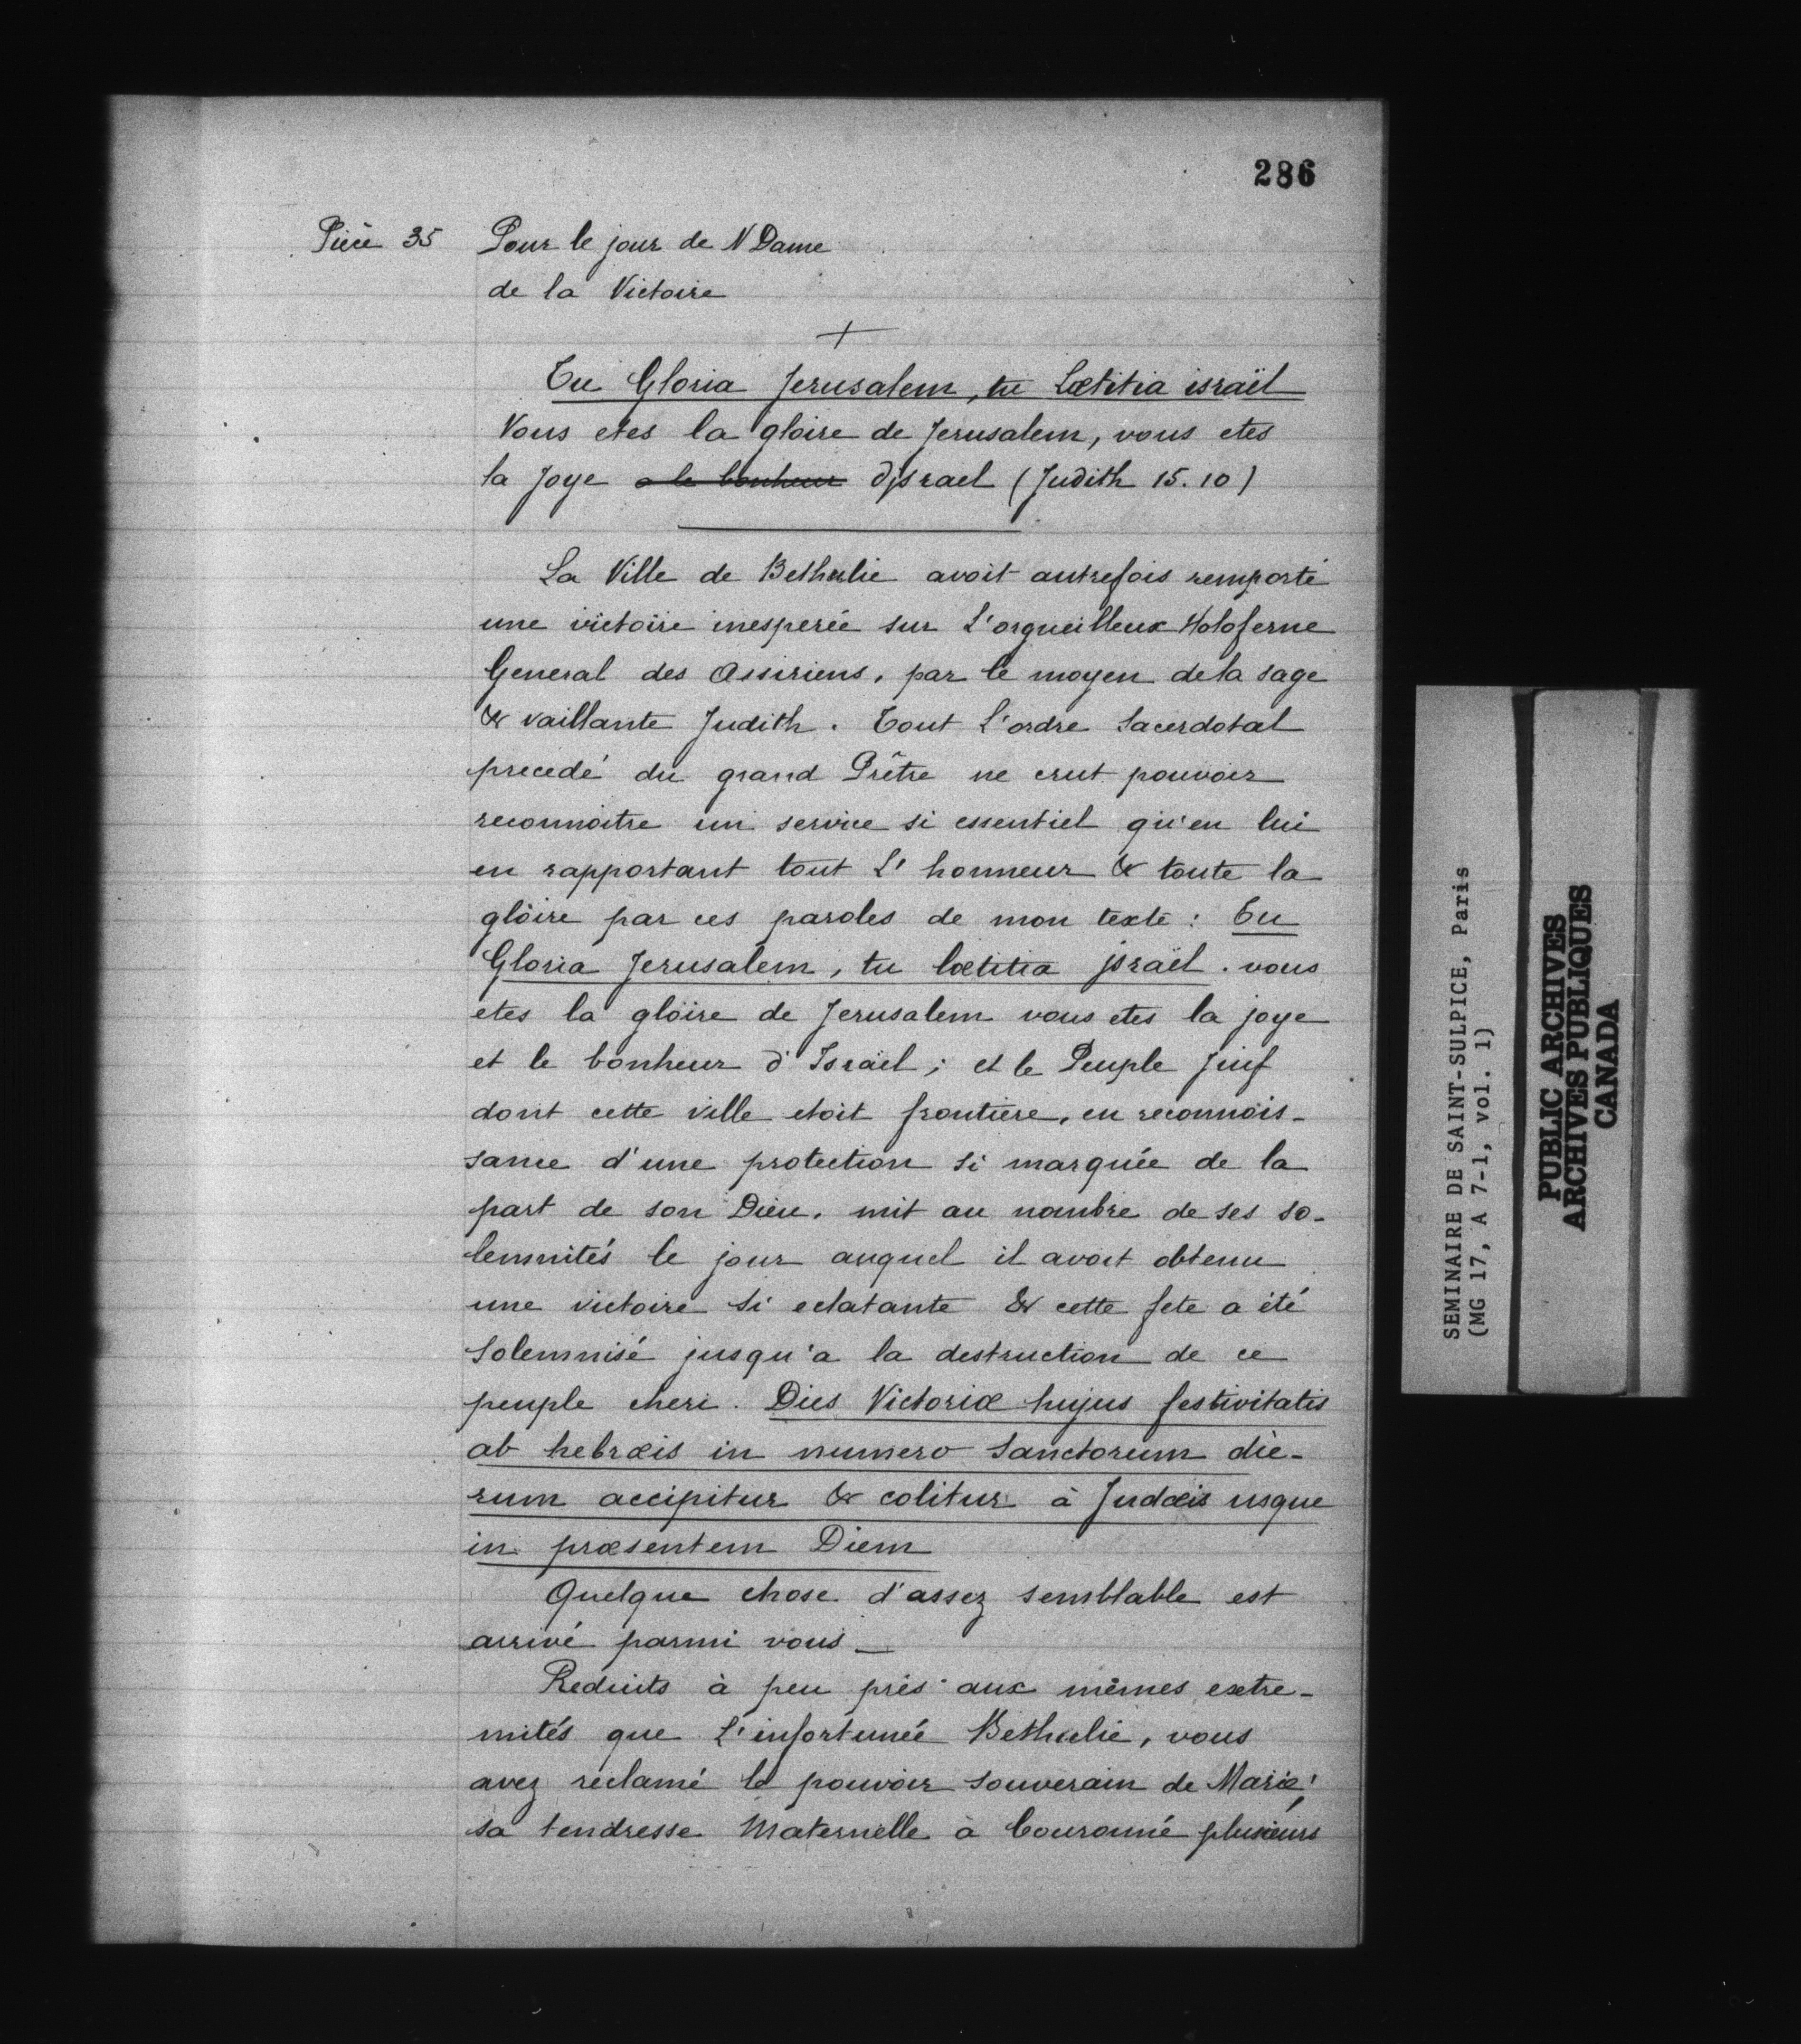 286
Pièce 35 Pour le jour de N Dame
de la Victoire
+
Tu Gloria Jerusalem, tu Lœtitia israël
Vous etes la gloire de Jerusalem, vous etes
la Joye a le bonheur djsrael (Judith 15.10)
La Ville de Bethulie avoit autrefois remporté
une victoire inesperée sur L'orgueilleux Holoferne
General des Assiriens, par le moyen de la sage
& vaillante Judith. Tout L'ordre Sacerdotal
precedé du grand Prêtre ne crut pouvoir
reconnoitre un service si essentiel qu'en lui
en rapportant tout L'honneur & toute la
gloire par ces paroles de mon texte : Tu
Gloria Jerusalem, tu lœtitia jsraël. vous
etes la gloire de Jerusalem vous etes la joye
et le bonheur d'Israël; et le Peuple Juif
dont cette ville etoit frontiere, en reconnois-
sance d'une protection si marquée de la
part de son Dieu, mit au nombre de ses so-
lemnités le jour auquel il avoit obtenu
une victoire si eclatante & cette fete a été
Solemnisé jusqu'a la destruction de ce
peuple cheri. Dies Victoriæ hujus festivitatis
ab hebræis in numero Sanctorum die-
rum accipitur & colitur à Judæis usque
in præsentem Diem
Quelque chose d'assez semblable est
arrivé parmi vous_
Reduits à peu près aux mêmes extre-
mités que L'infortunée Bethulie, vous
avez reclamé le pouvoir souverain de Marie;
sa tendresse Maternelle à Couronné plusieurs
SEMINAIRE DE SAINT-SULPICE, Paris
(MG 17, A 7-1, vol. 1)
PUBLIC ARCHIVES
ARCHIVES PUBLIQUES
CANADA